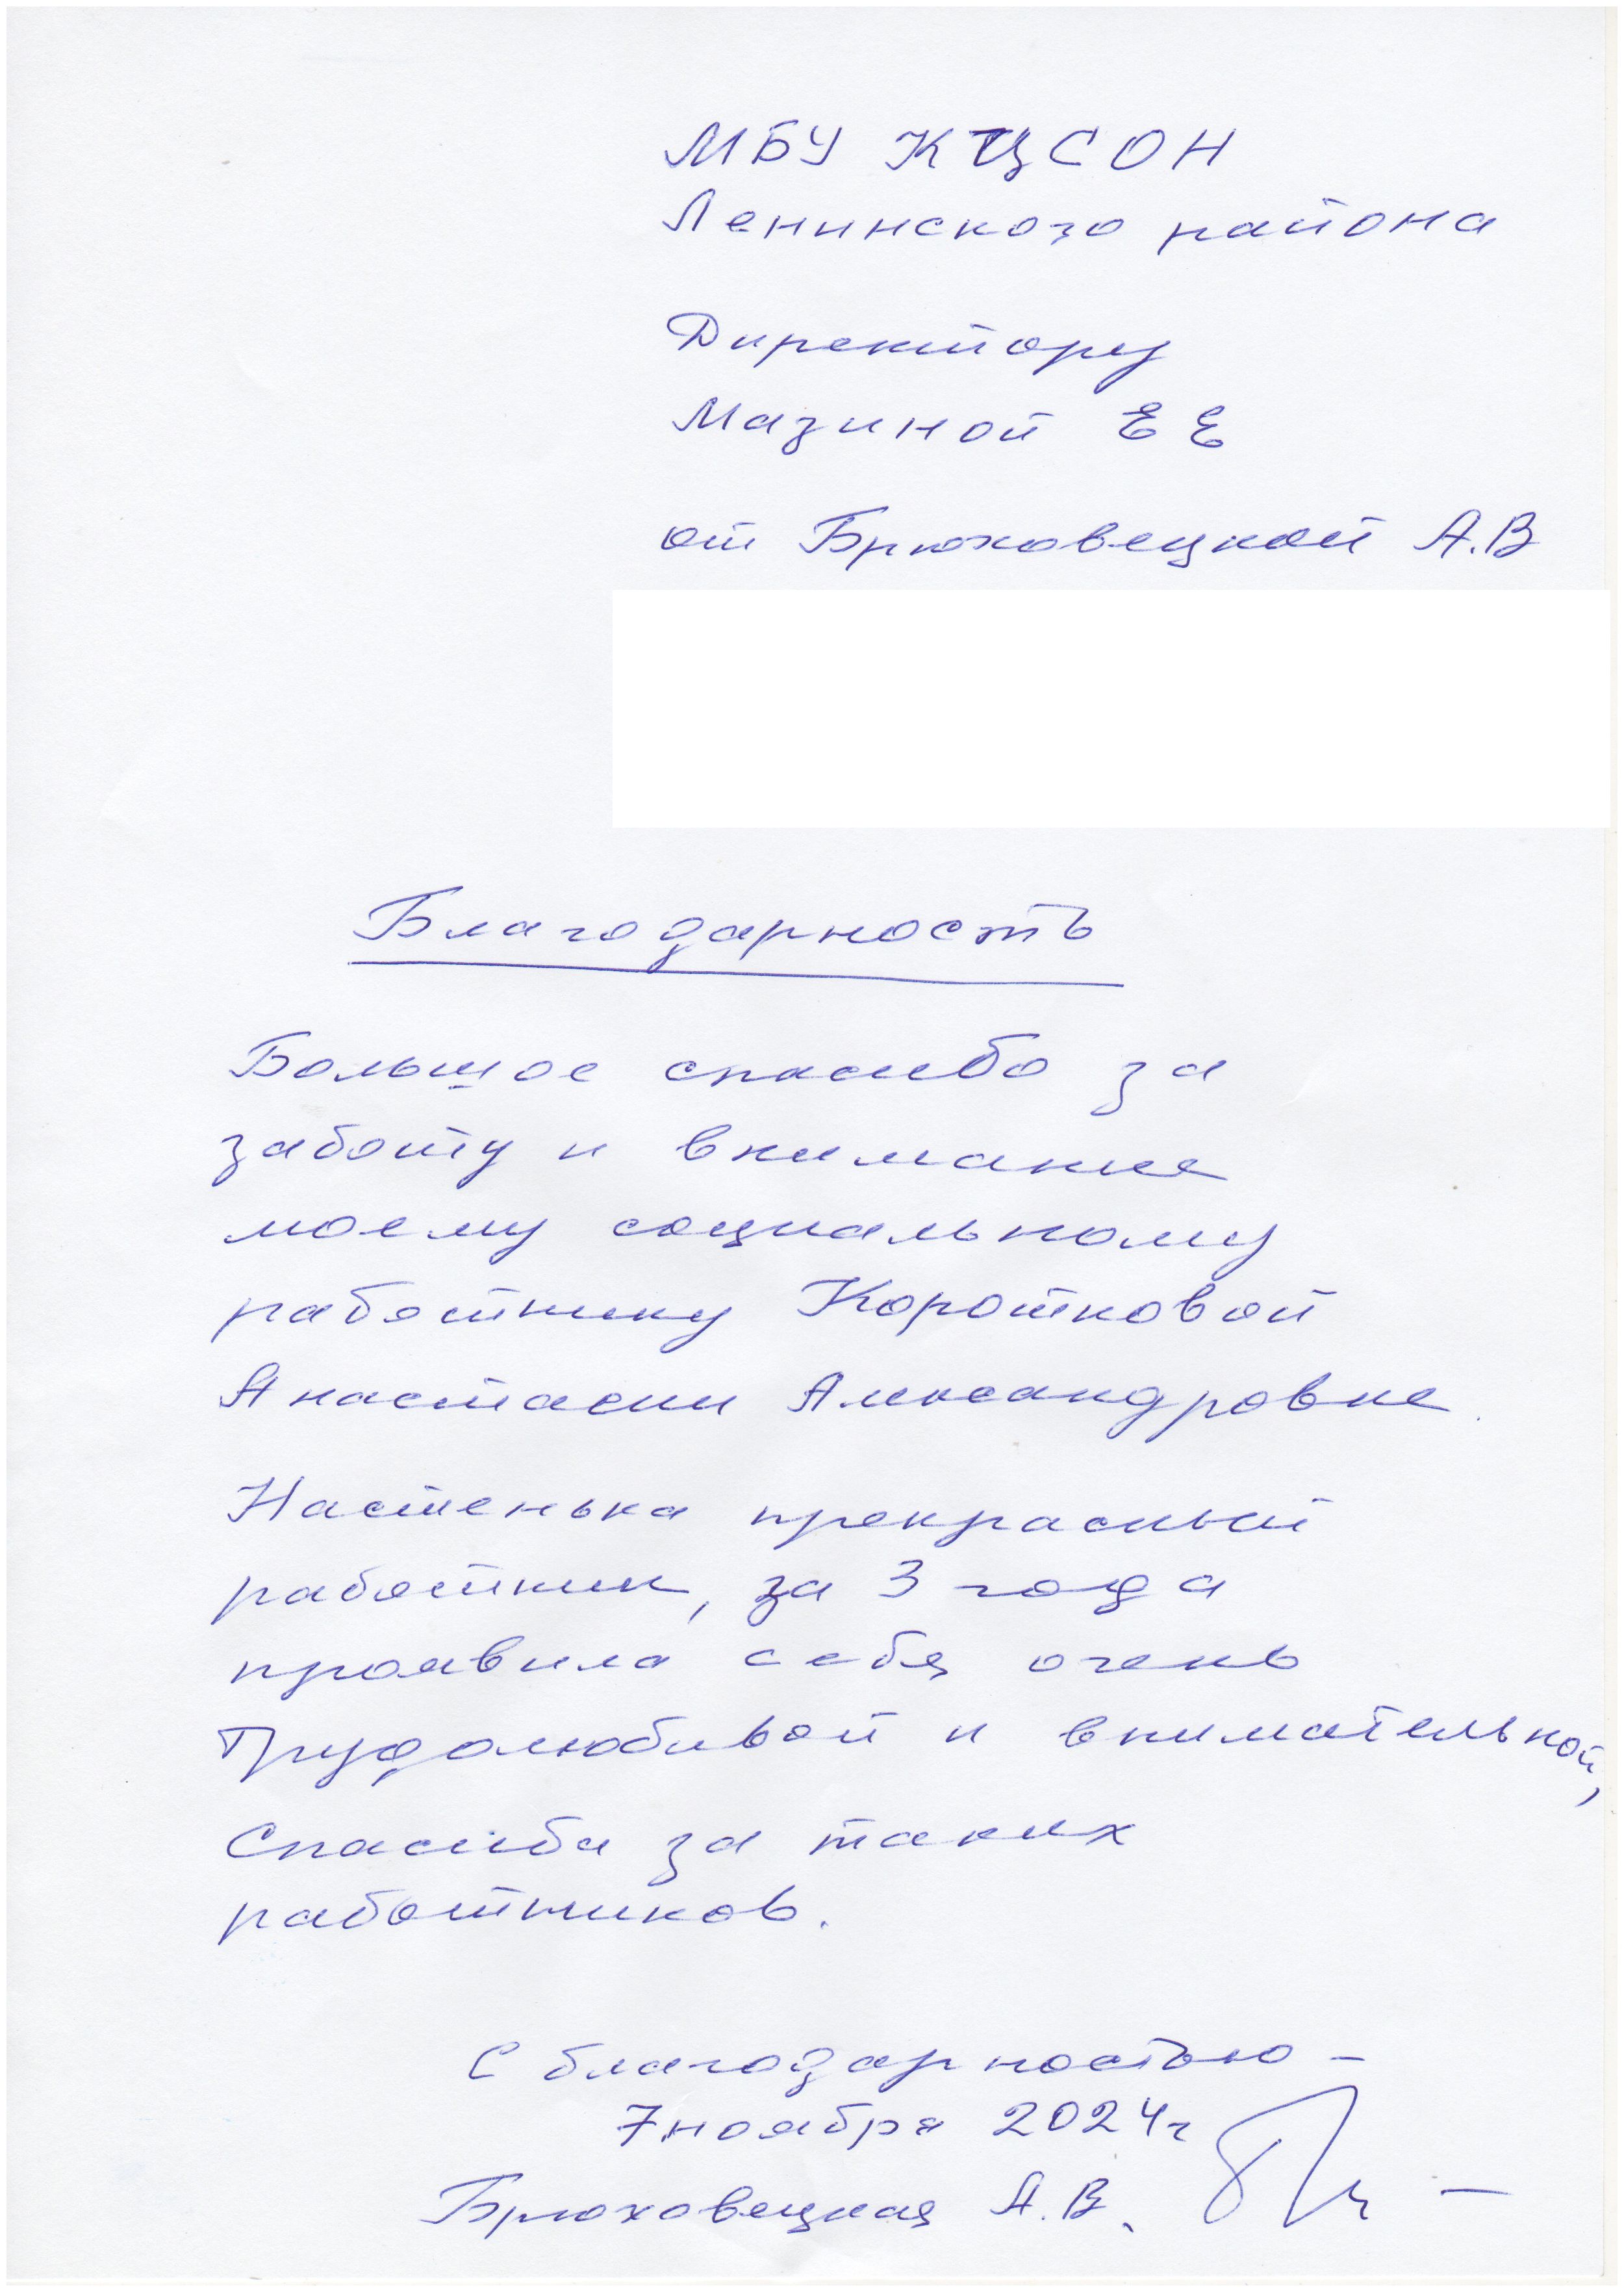 МБУ КЦСОН
Ленинского района
Директору
Мазиной ЕЕ
от Брюховецкой А.В
Благодарность
Большое спасибо за
заботу и внимание
моему социальному
работнику Коротковой
Анастасии Александровне.
Настенька прекрасный
работник, за 3 года
проявила себя очень
трудолюбивой и внимательной,
Спасибо за таких
работников.
С благодарностью –
7 ноября 2024г
Брюховецкая А.В.